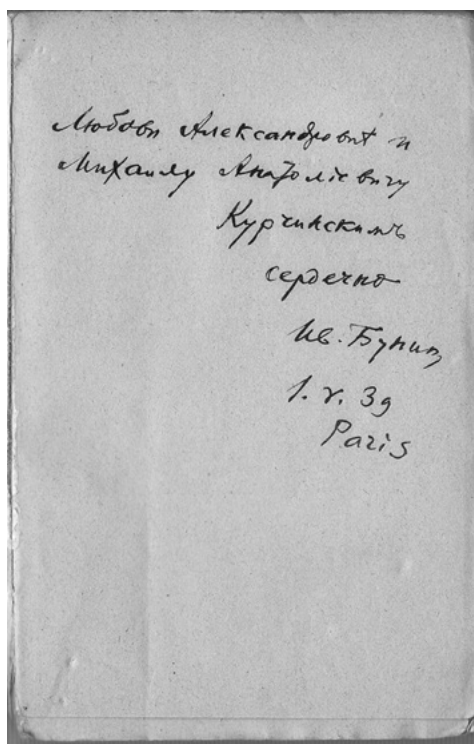 Любови Александровнѣ и
Михаилу Анатоліевичу
Курчинскимъ
сердечно
Ив. Бунинъ
1. V. 39
Paris